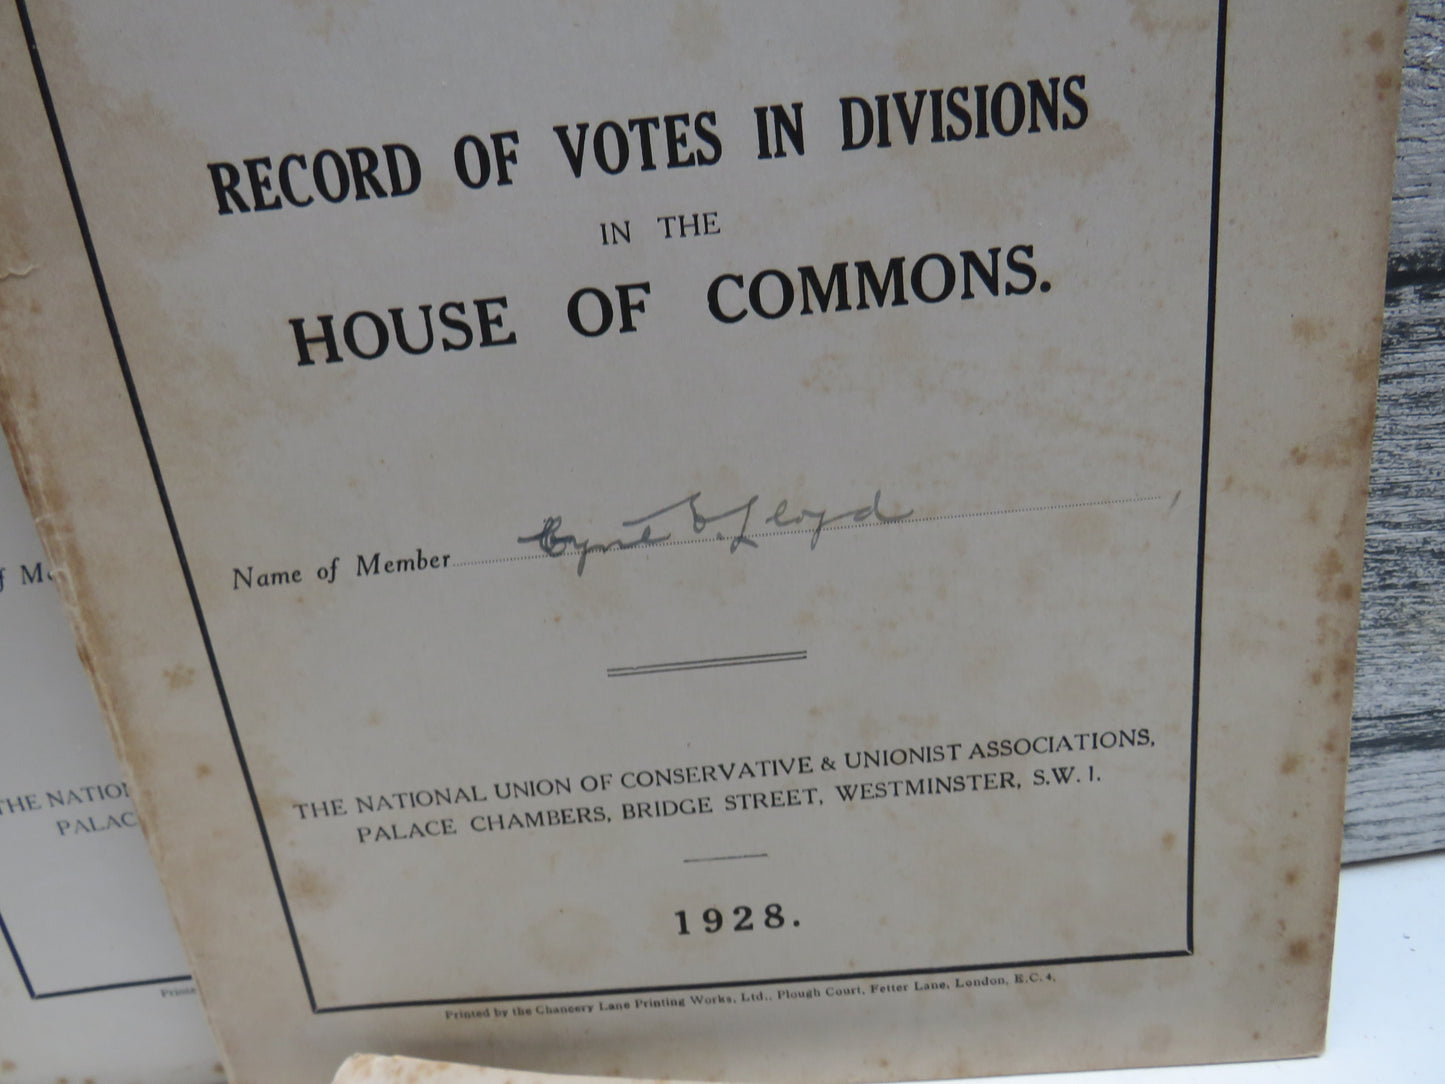 RECORD OF VOTES IN DIVISIONS
IN THE
HOUSE OF COMMONS.
Name of Member Cyril E. Lloyd
THE NATIONAL UNION OF CONSERVATIVE & UNIONIST ASSOCIATIONS,
PALACE CHAMBERS, BRIDGE STREET, WESTMINSTER, S.W. 1.
1928.
Printed by the Chancery Lane Printing Works, Ltd., Plough Court, Fetter Lane, London, E.C. 4.
THE NATIO
PALAC
Printe